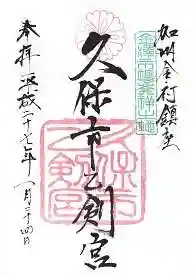 加州金府鎮座
久保市乙剣宮
久保市乙剣宮
奉拝 平成二十七年一月二十四日